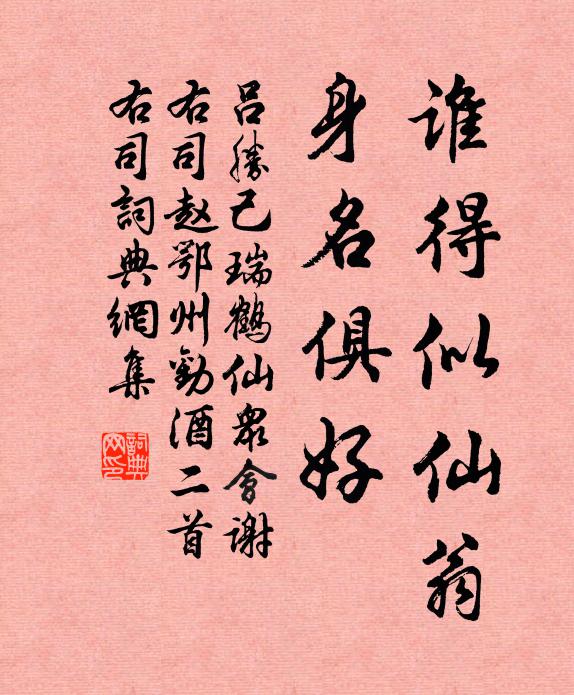 谁得似仙翁
身名俱好
吕胜己瑞鹤仙众会谢
右司赵鄂州劝酒二首
右司詞典網集
詞典网印